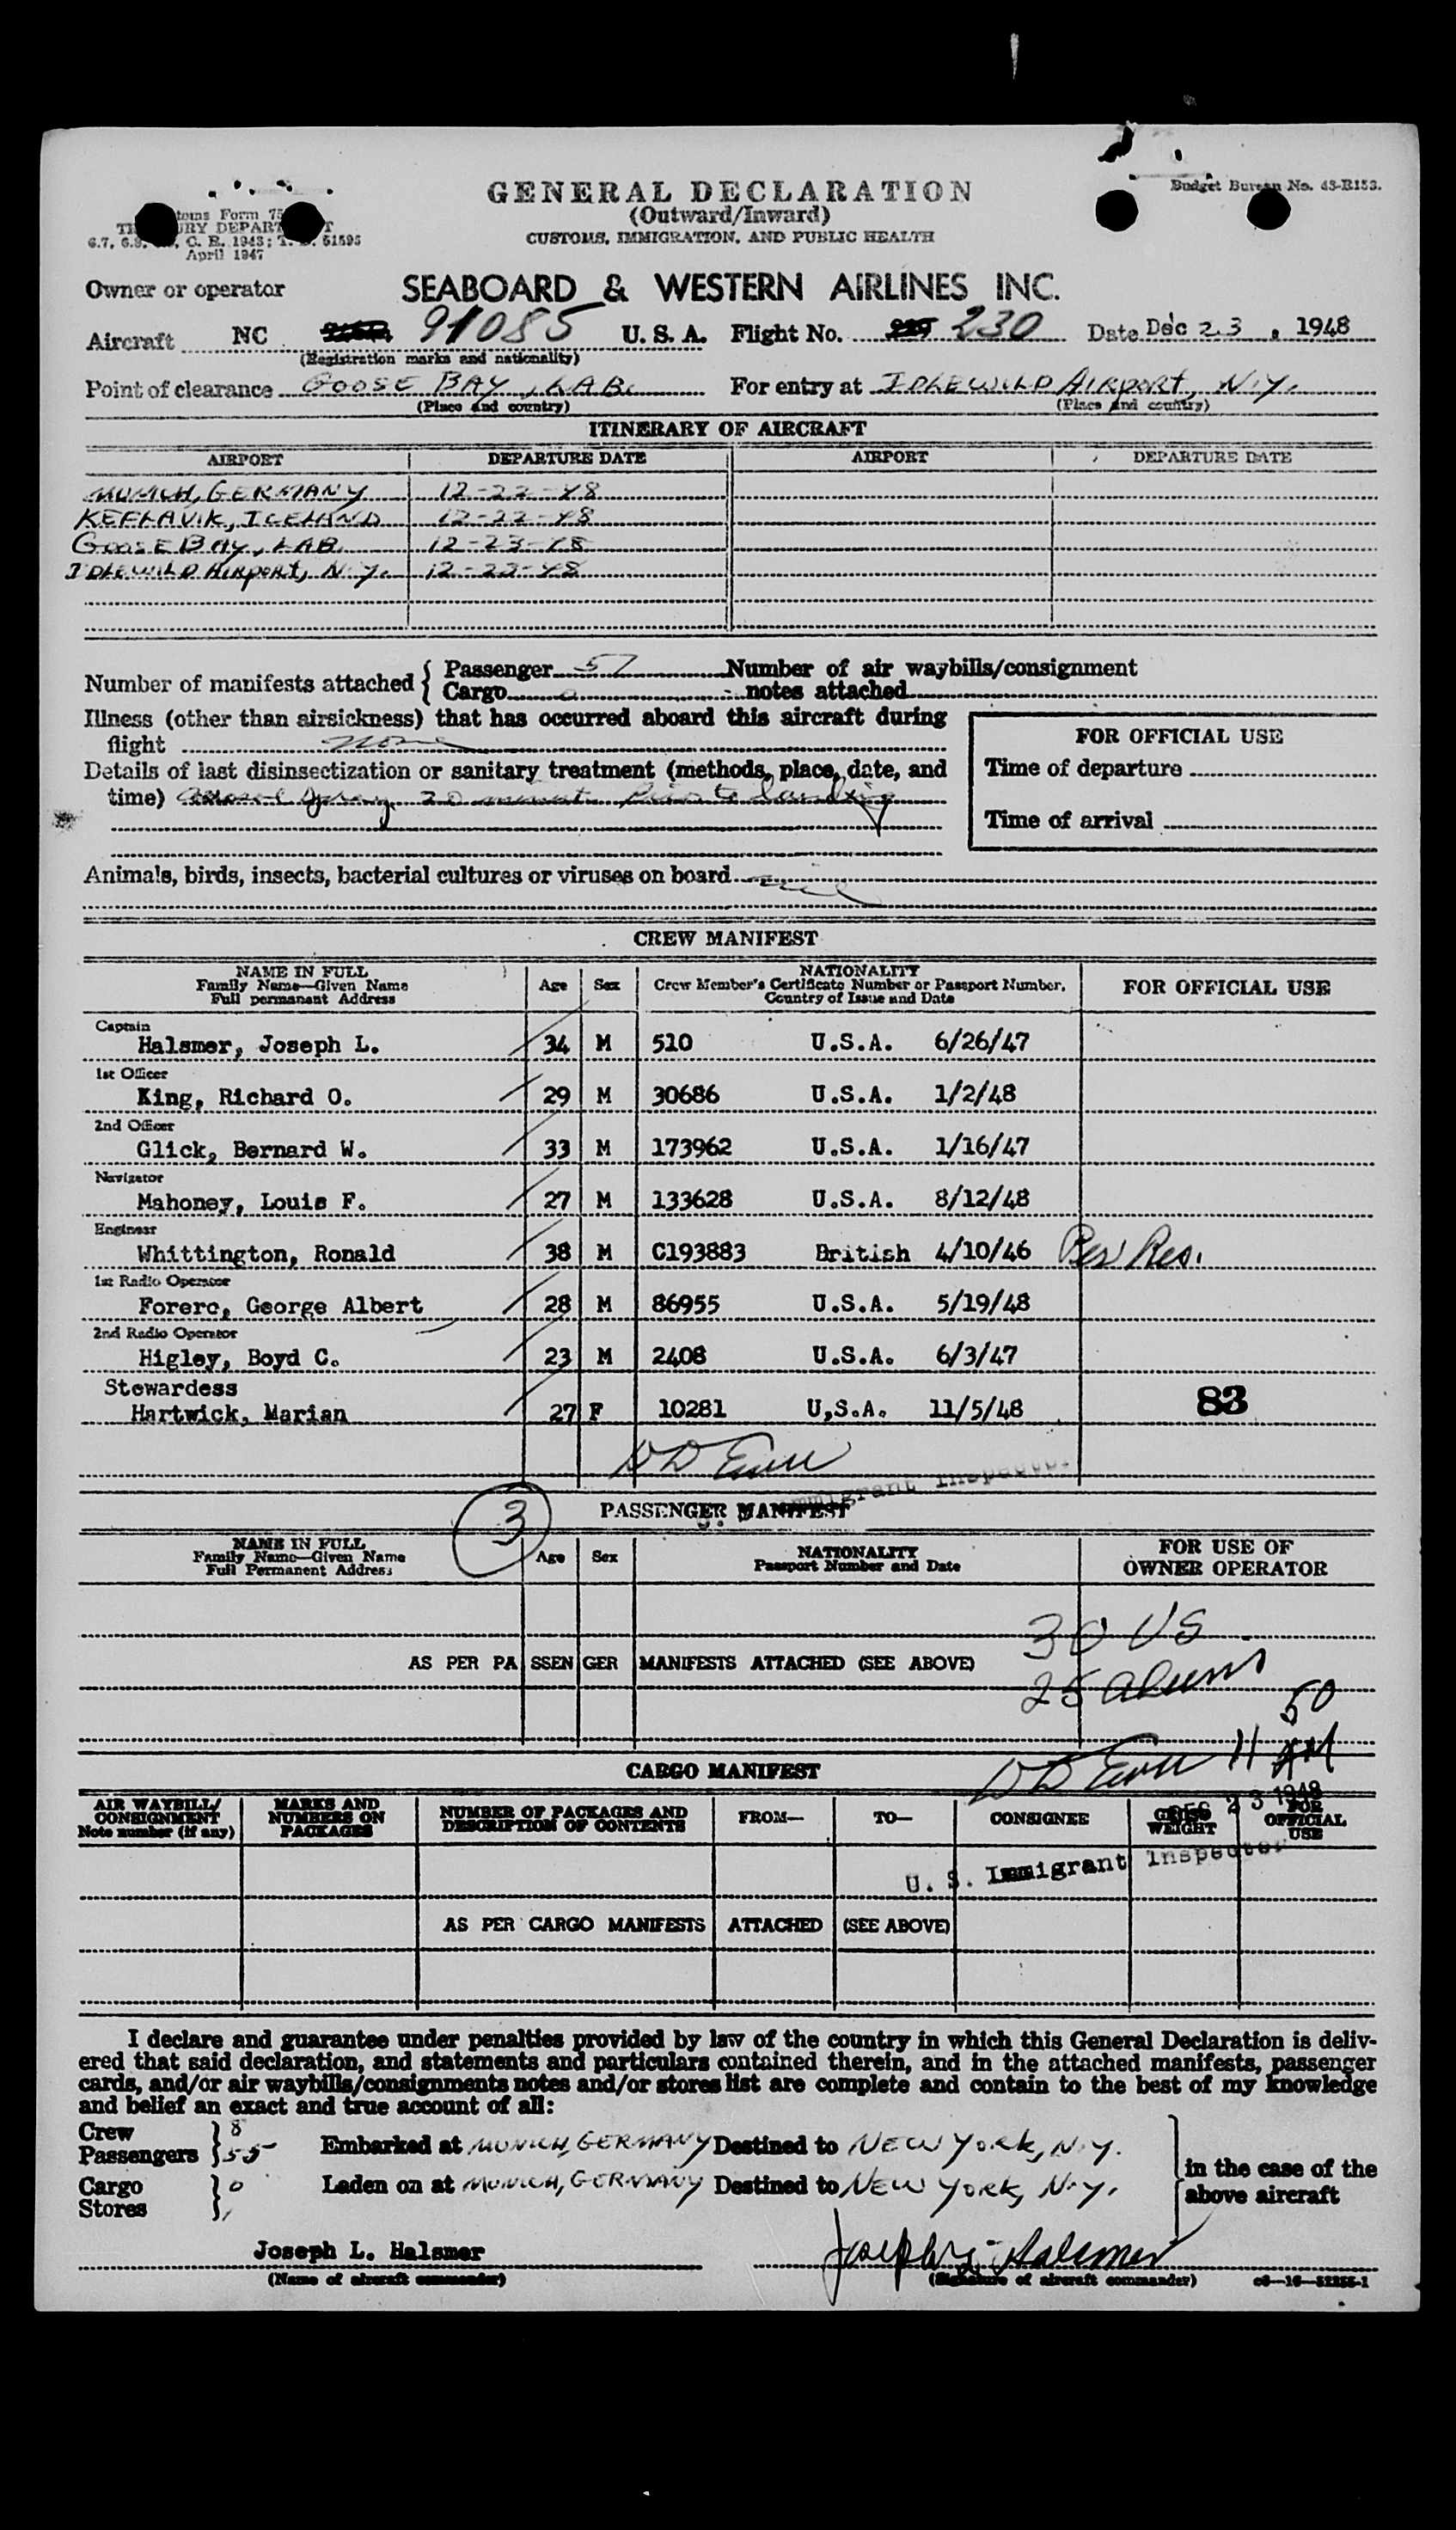 GENERAL DECLARATION
(Outward/Inward)
CUSTOMS, IMMIGRATION, AND PUBLIC HEALTH
Budget Bureau No. 43-R153.
toms Form 75
RY DEPAR T
6.7, 6.8, C. R. 1943; T. 51595
April 1947
Owner or operator SEABOARD & WESTERN AIRLINES INC.
Aircraft NC 91085 U. S. A. Flight No. 230 Date Dec 23, 1948
(Registration marks and nationality)
Point of clearance GOOSE BAY, LAB. For entry at IDLEWILD AIRPORT, N.Y.
(Place and country) (Place and country)
ITINERARY OF AIRCRAFT
AIRPORT DEPARTURE DATE AIRPORT DEPARTURE DATE
MUNICH, GERMANY 12-22-48
KEFLAVIK, ICELAND 12-22-48
GOOSE BAY, LAB. 12-23-48
IDLEWILD AIRPORT, N.Y. 12-23-48
Number of manifests attached { Passenger 57 Number of air waybills/consignment
Cargo 0 notes attached
Illness (other than airsickness) that has occurred aboard this aircraft during
flight none
FOR OFFICIAL USE
Details of last disinsectization or sanitary treatment (methods, place, date, and
Time of departure
time) Aerosol Spray 20 minutes prior to landing
Time of arrival
Animals, birds, insects, bacterial cultures or viruses on board nil
CREW MANIFEST
NAME IN FULL
Family Name—Given Name
Full permanent Address
Age Sex
NATIONALITY
Crew Member's Certificate Number or Passport Number,
Country of Issue and Date
FOR OFFICIAL USE
Captain
Halsmer, Joseph L. 34 M 510 U.S.A. 6/26/47
1st Officer
King, Richard O. 29 M 30686 U.S.A. 1/2/48
2nd Officer
Glick, Bernard W. 33 M 173962 U.S.A. 1/16/47
Navigator
Mahoney, Louis F. 27 M 133628 U.S.A. 8/12/48
Engineer
Whittington, Ronald 38 M C193883 British 4/10/46 Res.
1st Radio Operator
Forero, George Albert 28 M 86955 U.S.A. 5/19/48
2nd Radio Operator
Higley, Boyd C. 23 M 2408 U.S.A. 6/3/47
Stewardess
Hartwick, Marian 27 F 10281 U,S.A. 11/5/48 83
Immigrant Inspector
3
PASSENGER MANIFEST
NAME IN FULL
Family Name—Given Name
Full Permanent Address
Age Sex
NATIONALITY
Passport Number and Date
FOR USE OF
OWNER OPERATOR
30 US
AS PER PASSENGER MANIFESTS ATTACHED (SEE ABOVE)
25 aliens
50
11 AM
CARGO MANIFEST
DEC 23 1948
AIR WAYBILL/
CONSIGNMENT
Note number (if any)
MARKS AND
NUMBERS ON
PACKAGES
NUMBER OF PACKAGES AND
DESCRIPTION OF CONTENTS
FROM— TO— CONSIGNEE
GROSS
WEIGHT
FOR
OFFICIAL
USE
U. S. Immigrant Inspector
AS PER CARGO MANIFESTS ATTACHED (SEE ABOVE)
I declare and guarantee under penalties provided by law of the country in which this General Declaration is deliv-
ered that said declaration, and statements and particulars contained therein, and in the attached manifests, passenger
cards, and/or air waybills/consignments notes and/or stores list are complete and contain to the best of my knowledge
and belief an exact and true account of all:
Crew 8
Passengers 55 Embarked at MUNICH, GERMANY Destined to NEW YORK, N.Y.
Cargo 0 Laden on at MUNICH, GERMANY Destined to NEW YORK, N.Y.
Stores
in the case of the
above aircraft
Joseph L. Halsmer Joseph L. Halsmer
(Name of aircraft commander) (Signature of aircraft commander) c6—16—52255-1